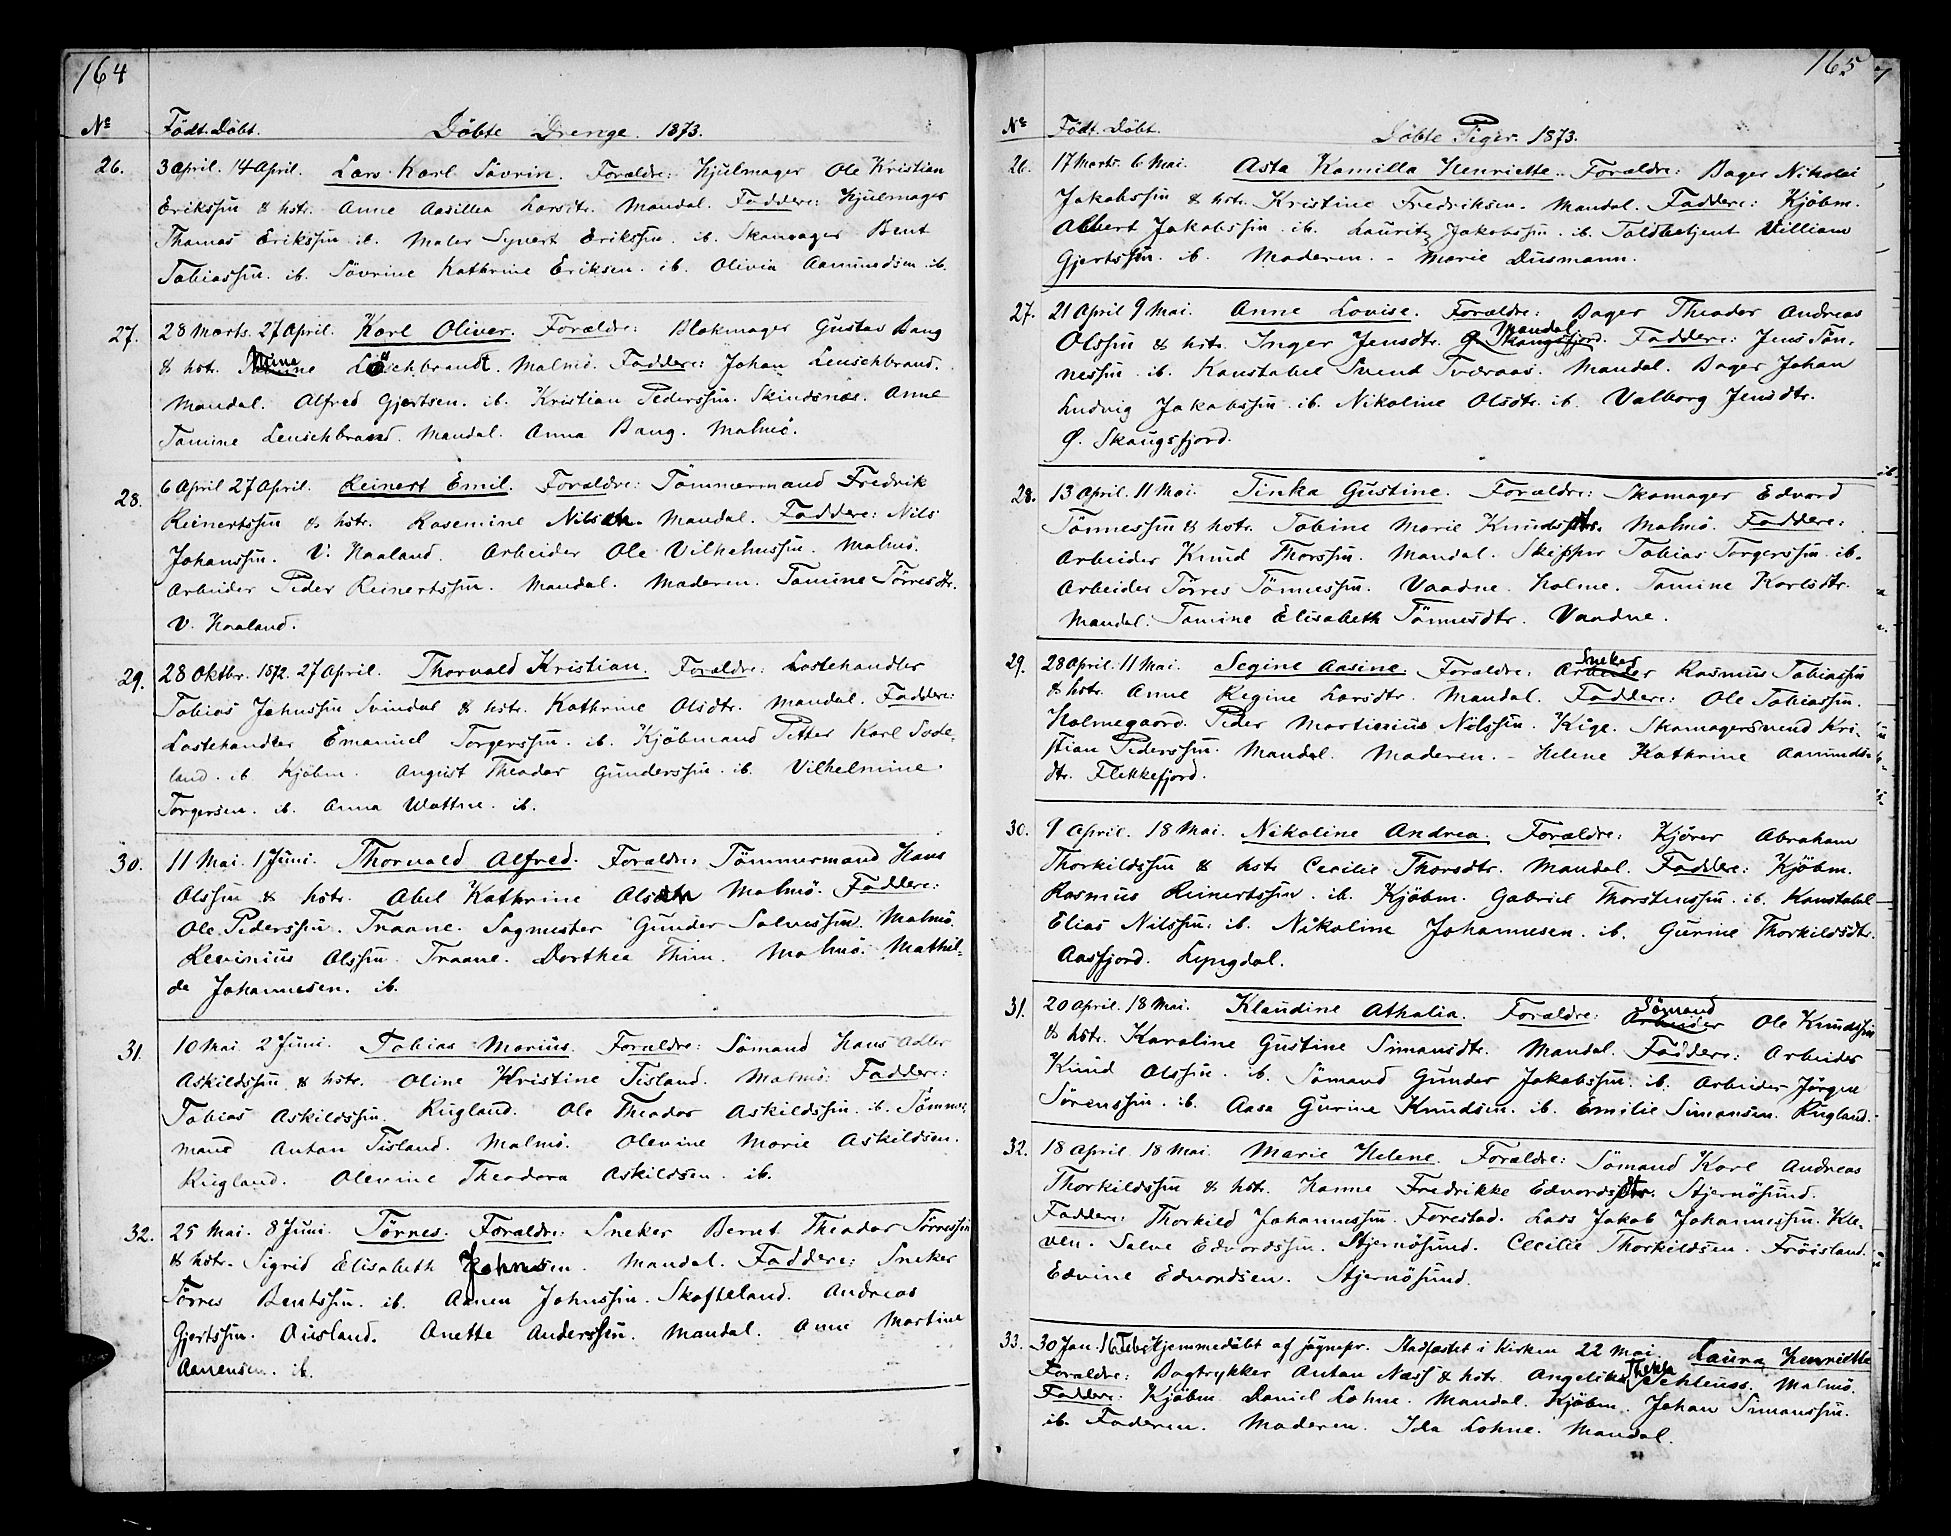 164
No Födt. Döbt. Döbte Drenge. 1873.
26. 3 April. 14 April. Lars Karl Sövrin. Forældre: Hjulmager Ole Kristian
Erikssön & hstr. Anne Aasillea Larsdtr. Mandal. Faddere: Hjulmager
Thomas Erikssön ib. Maler Syvert Erikssön. ib. Skomager Bent
Tobiassön. ib. Sövrine Kathrine Eriksen. ib. Olivia Aamundsen. ib.
27. 28 Marts. 27 April. Karl Oliver. Forældre: Blokmager Gustav Bang
& hstr. Mine Löschbrandt. Malmö. Faddere: Johan Leuschbrand.
Mandal. Alfred Gjertsen. ib. Kristian Pederssön. Skindsnes. Anne
Tomine Leuschbrand. Mandal. Anna Bang. Malmö.
28. 6 April 27 April. Reinert Emil. Forældre: Tömmermand Fredrik
Reinertssön & hstr. Rosemine Nilsdtr. Mandal. Faddere: Nils
Johanssön. V. Haaland. Arbeider Ole Vilhelmssön. Malmö.
Arbeider Peder Reinertssön. Mandal. Moderen. Tomine Törresdtr.
V. Haaland.
29. 28 Oktbr. 1872. 27 April. Thorvald Kristian. Forældre: Lostehandler
Tobias Jahnssön Svindal & hstr. Kathrine Olsdtr. Mandal. Faddere:
Lostehandler Emanuel Torgerssön. ib. Kjöbmand Petter Karl Sode-
land. ib. Kjöbm. August Theodor Gunderssön. ib. Vilhelmine
Torgersen. ib. Anna Wattne. ib.
30. 11 Mai. 1 Juni. Thorvald Alfred. Forældre: Tömmermand Hans
Olssön & hstr. Abel Kathrine Olsdtr Malmö. Faddere:
Ole Pederssön. Traane. Sagmester Gunder Salvessön. Malmö.
Revinius Olssön. Traane. Dorthea Thim. Malmö. Mathil-
de Johannesen. ib.
31. 10 Mai. 2 Juni. Tobias Marius. Forældre: Sömand Hans Adler
Askildssön & hstr. Oline Kristine Tisland. Malmö. Faddere:
Tobias Askildssön. Rugland. Ole Theodor Askildssön. ib. Tömmer-
mand Anton Tisland. Malmö. Olevine Marie Askildsen.
Rugland. Olevine Theodora Askildsen. ib.
32. 25 Mai. 8 Juni. Törnes. Forældre: Sneker Bernt Theodor Törressön
& hstr. Sigrid Elisabeth Johnsen. Mandal. Faddere: Sneker
Törres Bentssön. ib. Aanen Johnssön. Skofteland. Andreas
Gjertssön. Ousland. Anette Anderssön. Mandal. Anne Martine
Aanensen. ib.
165
No Födt. Döbt. Döbte Piger. 1873.
26. 17 Marts. 6 Mai. Asta Kamilla Henriette. Forældre: Bager Nikolai
Jakobssön & hstr. Kristine Fredriksen. Mandal. Faddere: Kjöbm.
Albert Jakobssön. ib. Lauritz Jakobssön. ib. Toldbetjent Villiam
Gjertssön. ib. Moderen. - Marie Dusmann.
27. 21 April 9 Mai. Anne Lovise. Forældre: Bager Theodor Andreas
Olssön & hstr. Inger Jensdtr. Ø. Skougsfjord. Mandal Faddere: Jens Tön-
nessön. ib. Konstabel Svend Tveraas. Mandal. Bager Johan
Ludvig Jakobssön. ib. Nikoline Olsdtr. ib. Valborg Jensdtr.
Ø. Skougsfjord.
28. 13 April. 11 Mai. Tinka Gustine. Forældre: Skomager Edvard
Tönnessön & hstr. Tobine Marie Knudsdtr. Malmö. Faddere:
Arbeider Knud Thorssön. Mandal. Skipper Tobias Torgerssön. ib.
Arbeider Törres Tönnessön. Vaadne. Holme. Tomine Karlsdtr.
Mandal. Tomine Elisabeth Tönnesdtr. Vaadne.
29. 28 April. 11 Mai. Segine Aasine. Forældre: Arbeider Sneker Rasmus Tobiassön
& hstr. Anne Regine Larsdtr. Mandal. Faddere: Ole Tobiassön.
Holmegaard. Peder Martinius Nilssön. Kige. Skomagersvend Kri-
stian Pederssön. Mandal. Moderen. - Helene Kathrine Aamunds-
dtr. Flekkefjord.
30. 9 April. 18 Mai. Nikoline Andrea. Forældre: Kjörer Abraham
Thorkildssön & hstr Cecilie Thorsdtr. Mandal. Faddere: Kjöbm.
Rasmus Reinertssön. ib. Kjöbm. Gabriel Thorstenssön. ib. Konstabel
Elias Nilssön. ib. Nikoline Johannesen. ib. Gurine Thorkildsdtr.
Aasfjord. Lyngdal.
31. 20 April. 18 Mai. Klaudine Athalia. Forældre: Arbeider Sömand Ole Knudssön
& hstr. Karoline Gustine Simonsdtr. Mandal. Faddere: Arbeider
Knud Olssön. ib. Sömand Gunder Jakobssön. ib. Arbeider Jörgen
Sörenssön. ib. Aasa Gurine Knudsen. ib. Emilie Simonsen. Rugland.
32. 18 April. 18 Mai. Marie Helene. Forældre: Sömand Karl Andreas
Thorkildssön & hstr. Hanne Fredrikke Edvardsdtr. Stjernösund.
Faddere: Thorkild Johannessön. Forestad. Lars Jakob Johannessön. Kle-
ven. Salve Edvardssön. Stjernösund. Cecilie Thorkildsen. Fröisland.
Edvine Edvardsen. Stjernösund.
33. 30 Jan. 16 Febr. Hjemmedöbt af Sognepr. Stadfæstet i Kirken 22 Mai. Laura Henriette
Forældre: Bogtrykker Anton Næss & hstr. Angelika Thekla Schleuss. Malmö.
Faddere: Kjöbm Daniel Lohne. Mandal. Kjöbm. Johan Simonssön.
ib. Faderen. Moderen. Ida Lohne. Mandal.